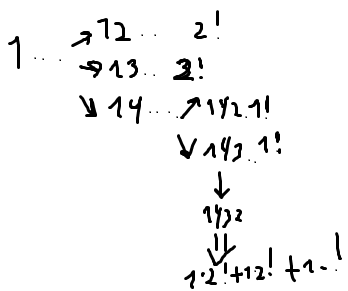 1.... → 12.. 2!
→ 13... 2!
↘ 14.... ↗ 142.1!
↘ 143..1!
↓
1432
⇓
1·2!+1·2!+1·.!